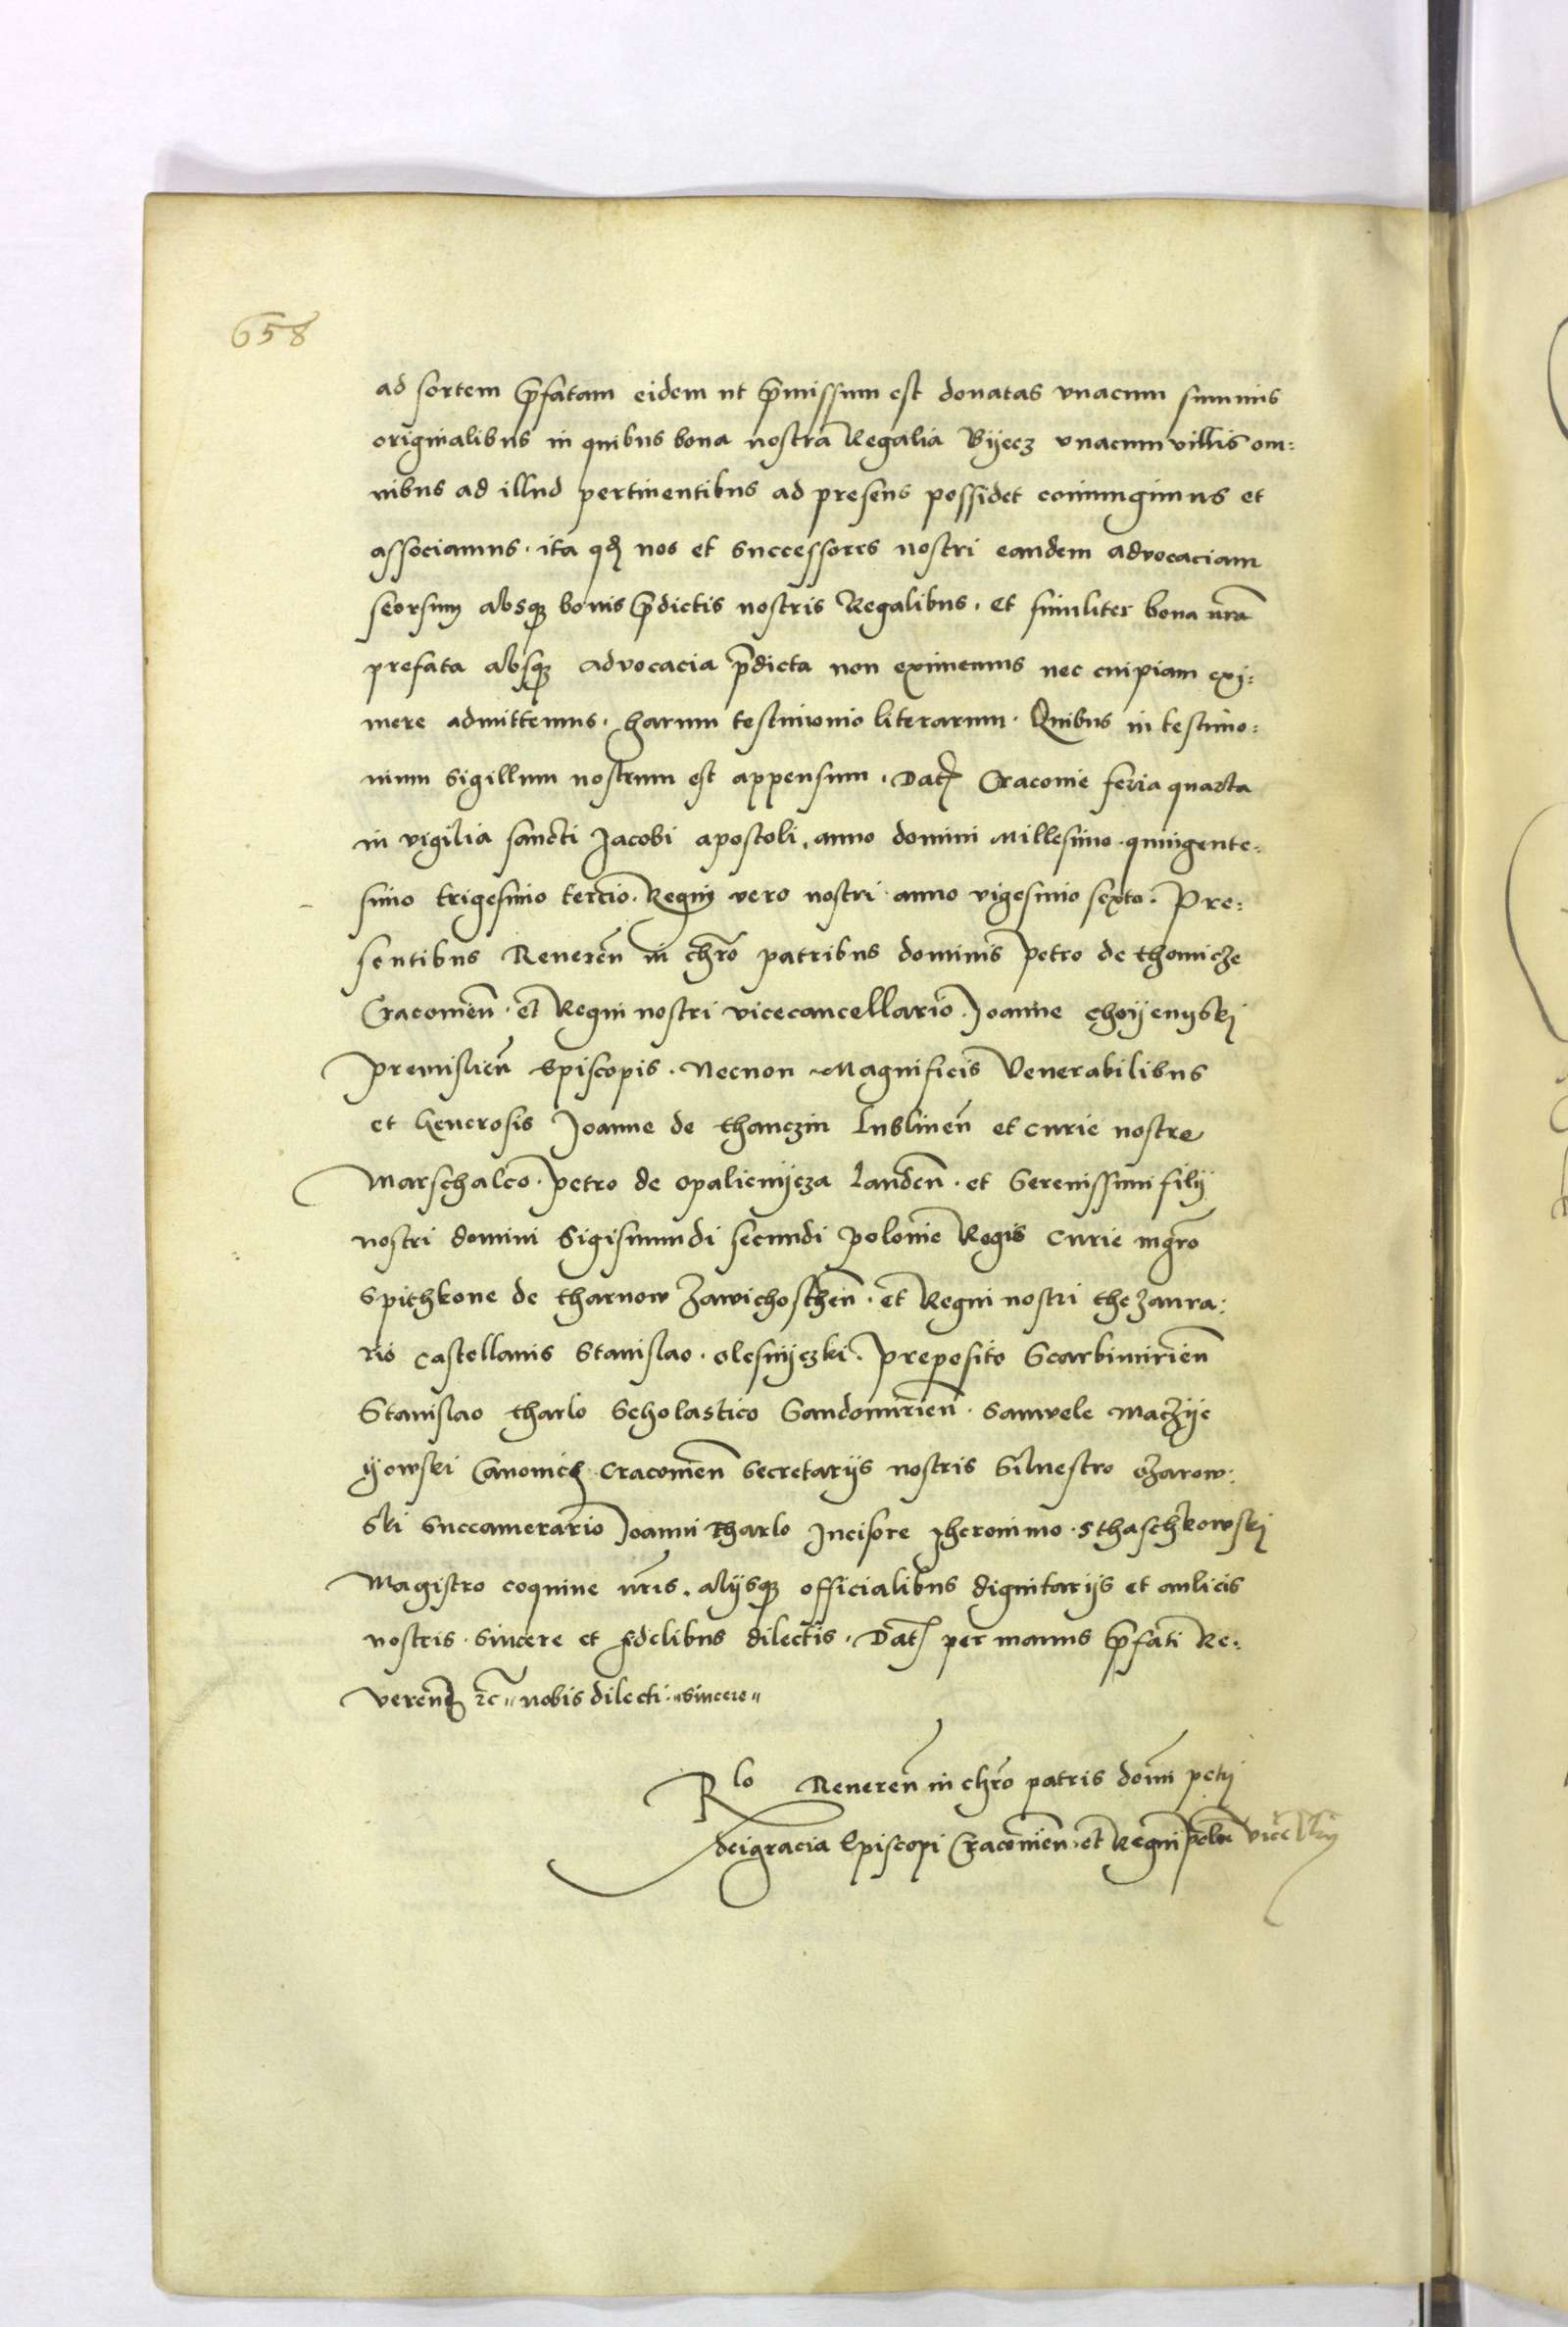 658
ad sortem p̄fatam eidem ut p̄missum est donatas vnacum summis
originalibus in quibus bona nostra Regalia Byecz vnacum villis om:
nibus ad illud pertinentibus ad presens possidet coniungimus et
associamus. ita qđ nos et successores nostri eandem advocaciam
seorsum absqꝫ bonis p̄dictis nostris Regalibus. et similiter bona nr̄a
prefata absqꝫ advocacia p̄dicta non eximemus nec cuipiam exi:
mere admittemus. harum testimonio literarum. Quibus in testimo:
nium Sigillum nostrum est appensum. Dat̄ Cracouie feria quarta
in vigilia sancti Jacobi apostoli. anno domini Millesimo quingente:
simo trigesimo tercio. Regni vero nostri anno vigesimo sexto. Pre:
sentibus Reueren̄ in chr̄o patribus dominis Petro de thomicze
Cracouien̄. et Regni nostri vicecancellario. Joanne choyenyski
Premislien̄ Episcopis. Necnon Magnificis Venerabilibus
et Generosis Joanne de thanczin Lublinen̄ et curie nostre
Marschalco. Petro de opalienycza Landen̄. et Serenissimi filij
nostri domini Sigismundi secundi Polonie Regis Curie mgr̄o
Spithkone de tharnow Zawichosthen̄. et Regni nostri thezaura:
rio Castellanis Stanislao. olesnyczki. Preposito Scarbimirien̄
Stanislao tharlo Scholastico Sandomirien̄. Samuele maczye
yowski Canonic̄ Cracouien̄ Secretarijs nostris Siluestro ozarow:
ski Succamerario Joanni Tharlo Incisore Jheronimo. Sthaschkowski
Magistro coquine nr̄is. alijsqꝫ officialibus dignitarijs et aulicis
nostris. sincere et fidelibus dilectis. Dat̄ per manus p̄fati Re:
verend ꝛc̄ nobis dilecti sincere
Rlo Reueren̄ in chr̄o patris domi̅ petri
deigracia Episcopi Cracouien̄. et Regni polon̄